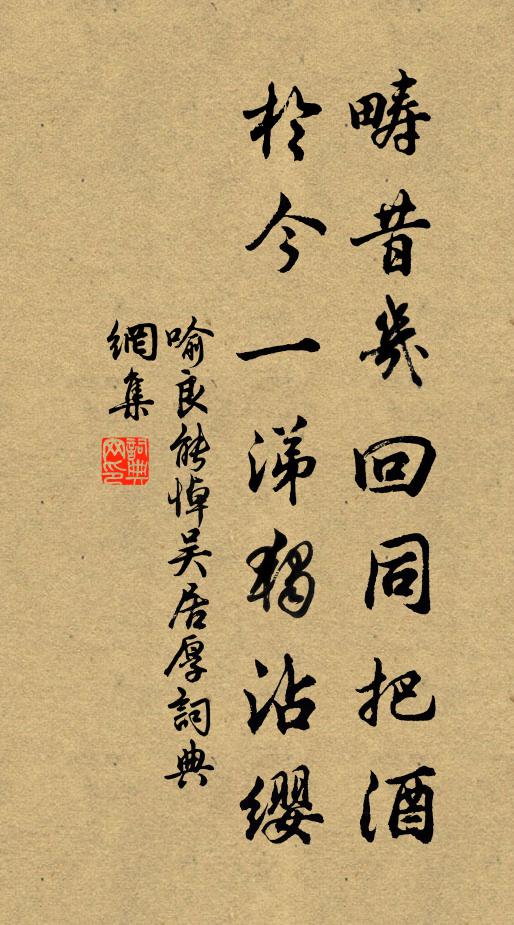 疇昔幾回同把酒
於今一涕獨沾纓
喻良能悼吴居厚詞典
網集
詞典网印